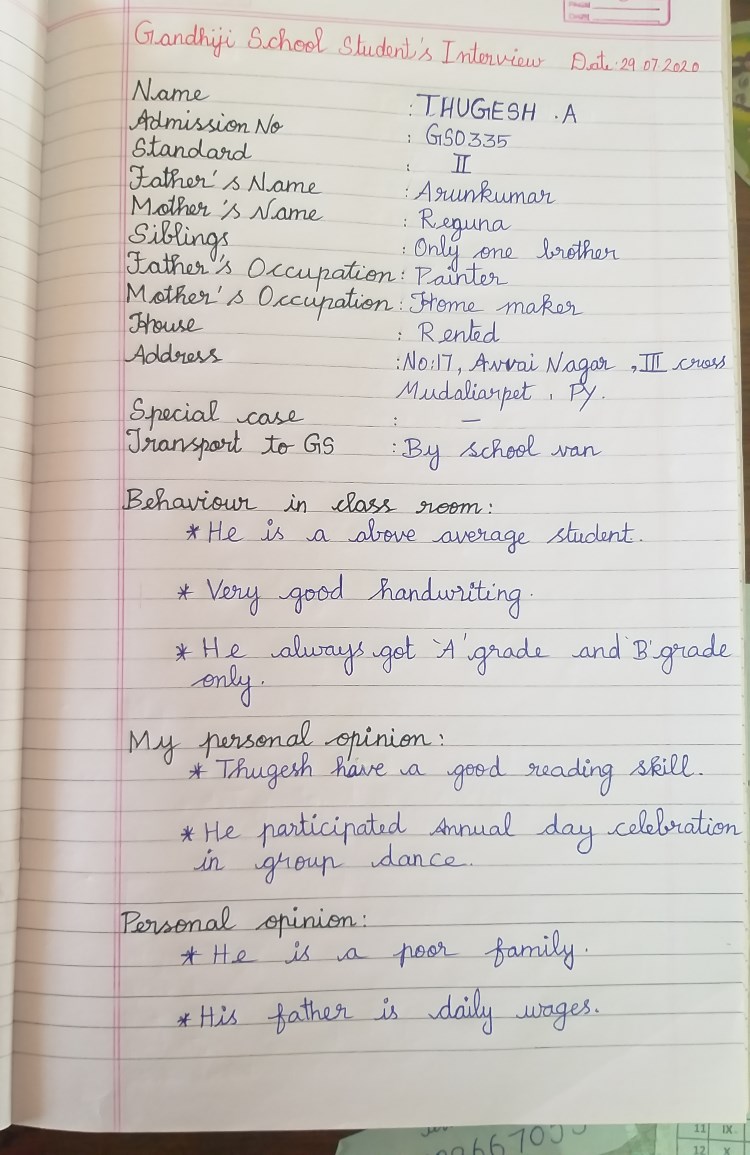 Gandhiji School Student's Interview Date: 29.07.2020
Name : THUGESH .A
Admission No : GS0335
Standard : II
Father's Name : Arunkumar
Mother's Name : Reguna
Siblings : Only one brother
Father's Occupation : Painter
Mother's Occupation : Home maker
House : Rented
Address : No:17, Avvai Nagar, III cross
Mudaliarpet, Py.
Special case : —
Transport to GS : By school van
Behaviour in class room:
* He is a above average student.
* Very good handwriting.
* He always got 'A' grade and 'B' grade
only.
My personal opinion:
* Thugesh have a good reading skill.
* He participated Annual day celebration
in group dance.
Personal opinion:
* He is a poor family.
* His father is daily wages.
11 IX
12 X